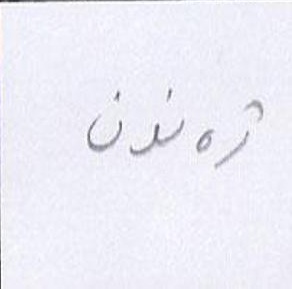 ژەندن